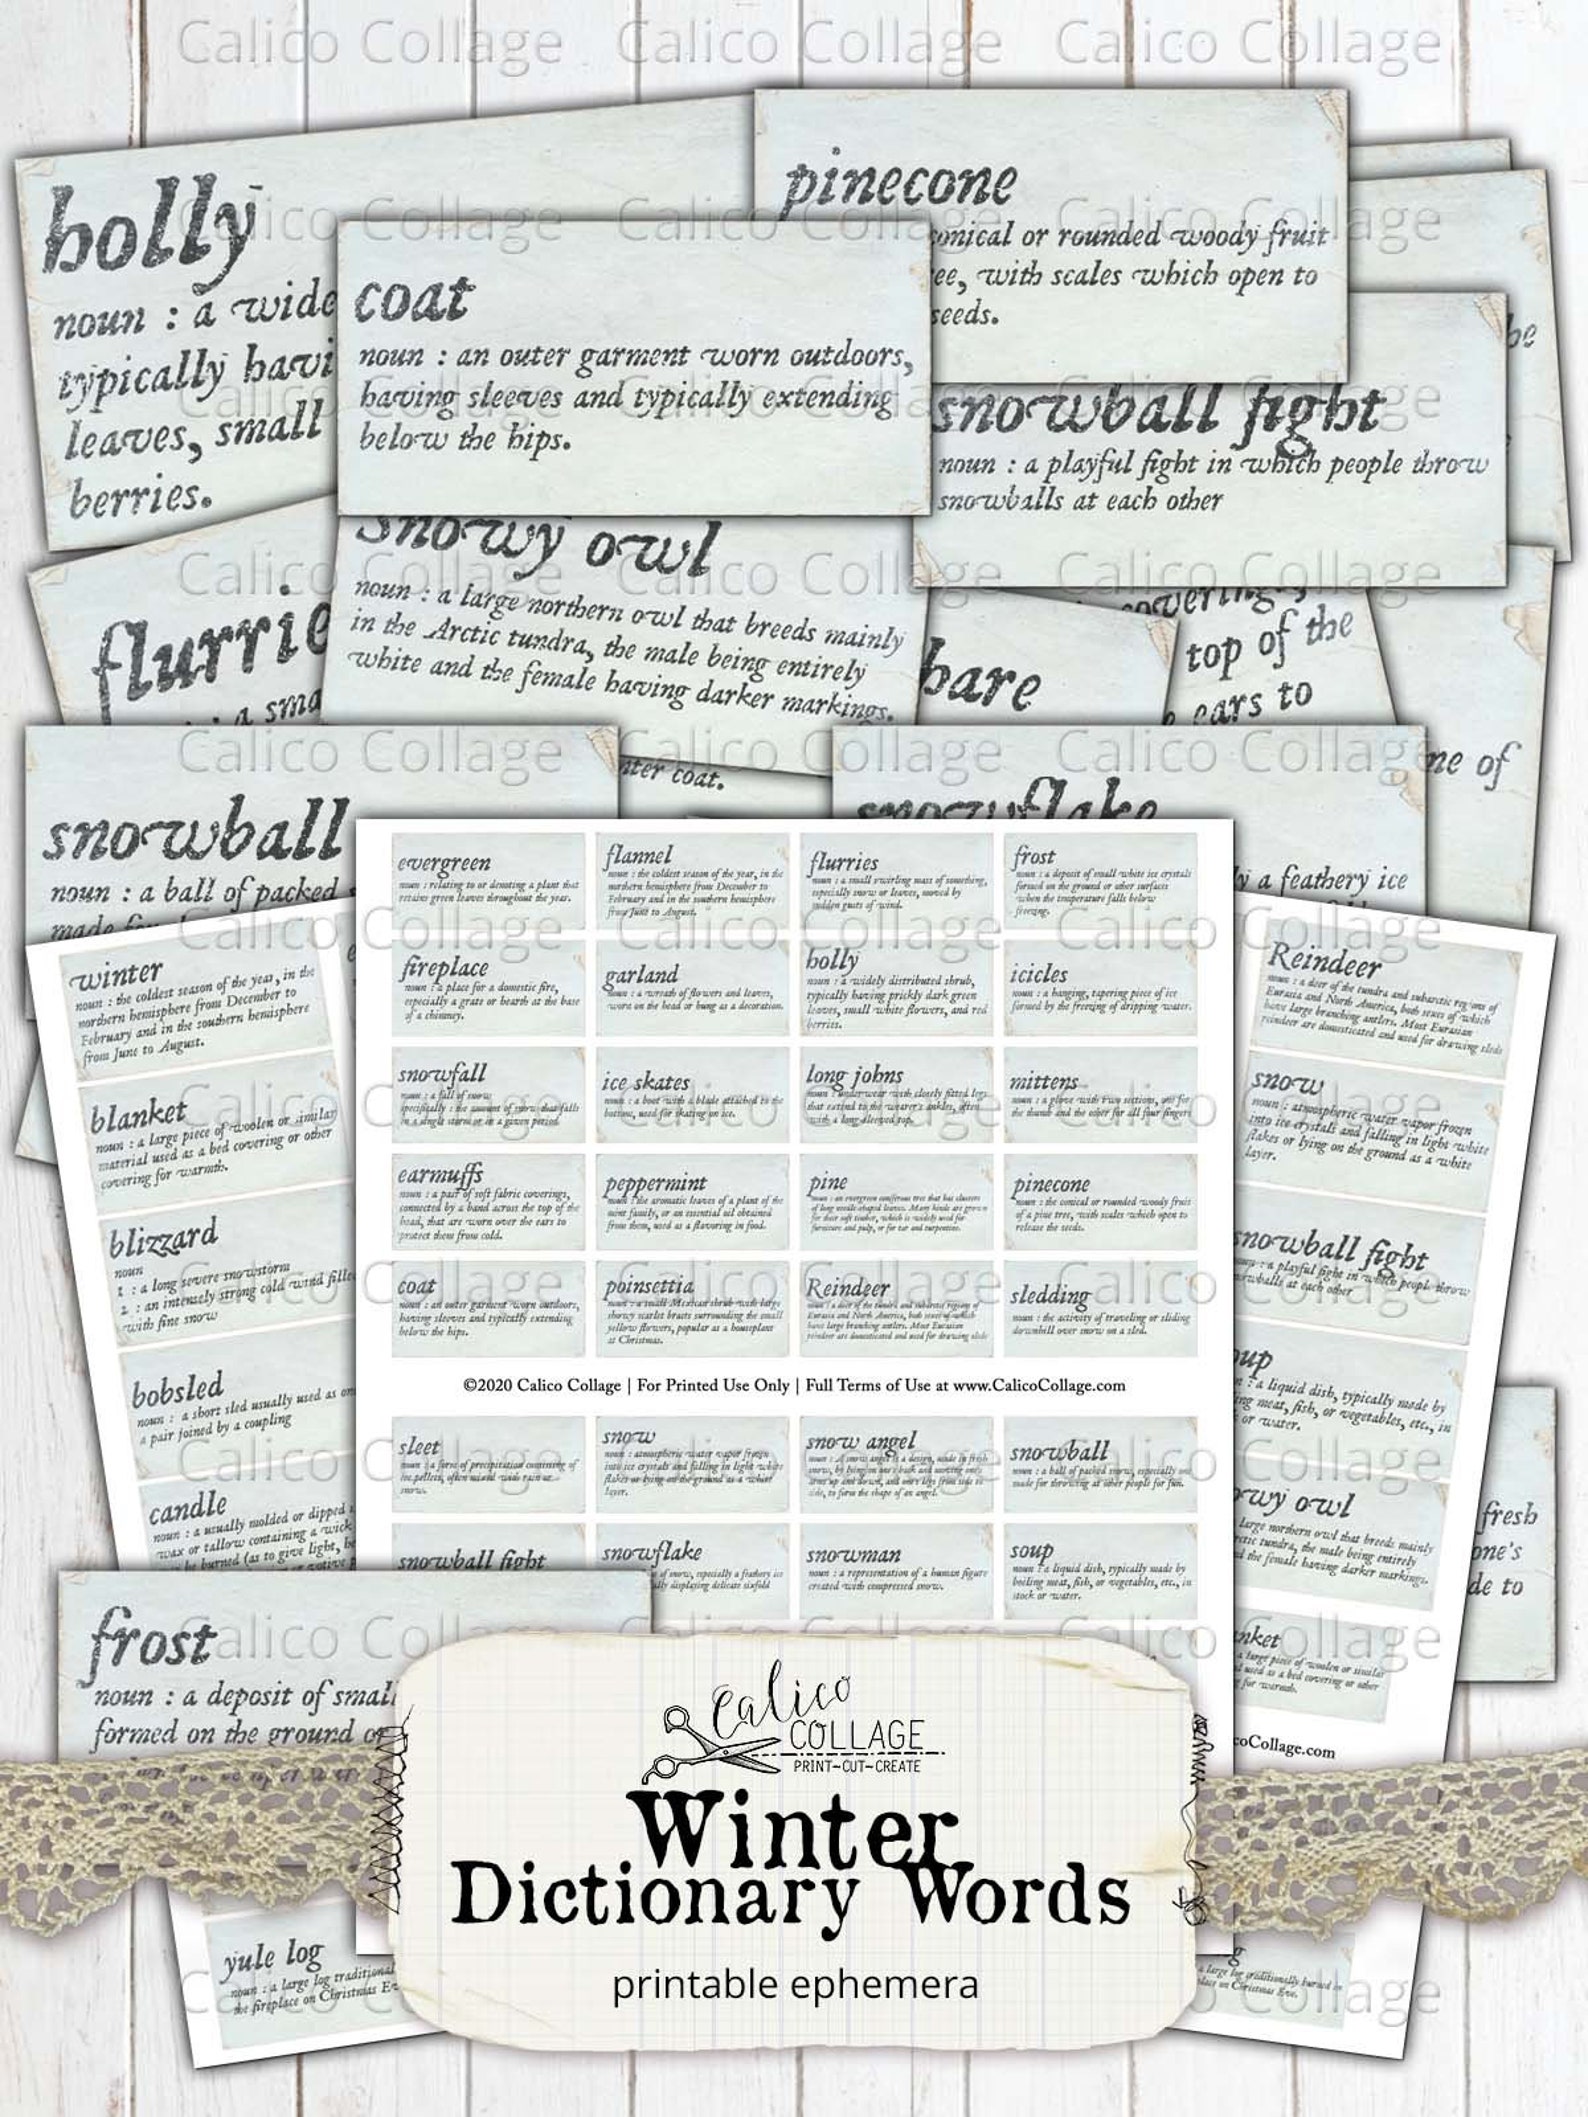 Calico Collage Calico Collage Calico Collage
holly
noun : a wide
typically havi
leaves, small
berries.
pinecone
onical or rounded woody fruit
ee, with scales which open to
seeds.
be
coat
noun : an outer garment worn outdoors,
having sleeves and typically extending
below the hips.
snowball fight
noun : a playful fight in which people throw
snowballs at each other
snowy owl
noun : a large northern owl that breeds mainly
in the Arctic tundra, the male being entirely
white and the female having darker markings.
flurrie
: a sma
hare
covering
top of the
ears to
me of
nter coat.
snowball
noun : a ball of packed
made for
snowflake
y a feathery ice
winter
noun : the coldest season of the year, in the
northern hemisphere from December to
February and in the southern hemisphere
from June to August.
blanket
noun : a large piece of woolen or similar
material used as a bed covering or other
covering for warmth.
blizzard
noun
1 : a long severe snowstorm
2 : an intensely strong cold wind filled
with fine snow
bobsled
noun : a short sled usually used as one
a pair joined by a coupling
candle
noun : a usually molded or dipped
wax or tallow containing a wick
be burned (as to give light, he
evergreen
noun : relating to or denoting a plant that
retains green leaves throughout the year.
flannel
noun : the coldest season of the year, in the
northern hemisphere from December to
February and in the southern hemisphere
from June to August.
flurries
noun : a small swirling mass of something,
especially snow or leaves, moved by
sudden gusts of wind.
frost
noun : a deposit of small white ice crystals
formed on the ground or other surfaces
when the temperature falls below
freezing.
fireplace
noun : a place for a domestic fire,
especially a grate or hearth at the base
of a chimney.
garland
noun : a wreath of flowers and leaves,
worn on the head or hung as a decoration.
holly
noun : a widely distributed shrub,
typically having prickly dark green
leaves, small white flowers, and red
berries.
icicles
noun : a hanging, tapering piece of ice
formed by the freezing of dripping water.
snowfall
noun : a fall of snow
specifically : the amount of snow that falls
in a single storm or in a given period
ice skates
noun : a boot with a blade attached to the
bottom, used for skating on ice.
long johns
noun : underwear with closely fitted legs
that extend to the wearer's ankles, often
with a long-sleeved top.
mittens
noun : a glove with two sections, one for
the thumb and the other for all four fingers
earmuffs
noun : a pair of soft fabric coverings,
connected by a band across the top of the
head, that are worn over the ears to
protect them from cold.
peppermint
noun : the aromatic leaves of a plant of the
mint family, or an essential oil obtained
from them, used as a flavoring in food.
pine
noun : an evergreen coniferous tree that has clusters
of long needle-shaped leaves. Many kinds are grown
for their soft timber, which is widely used for
furniture and pulp, or for tar and turpentine.
pinecone
noun : the conical or rounded woody fruit
of a pine tree, with scales which open to
release the seeds.
coat
noun : an outer garment worn outdoors,
having sleeves and typically extending
below the hips.
poinsettia
noun : a small Mexican shrub with large
showy scarlet bracts surrounding the small
yellow flowers, popular as a houseplant
at Christmas.
Reindeer
noun : a deer of the tundra and subarctic regions of
Eurasia and North America, both sexes of which
have large branching antlers. Most Eurasian
reindeer are domesticated and used for drawing sleds
sledding
noun : the activity of traveling or sliding
downhill over snow on a sled.
©2020 Calico Collage | For Printed Use Only | Full Terms of Use at www.CalicoCollage.com
sleet
noun : a form of precipitation consisting of
ice pellets, often mixed with rain or
snow.
snow
noun : atmospheric water vapor frozen
into ice crystals and falling in light white
flakes or lying on the ground as a white
layer.
snow angel
noun : A snow angel is a design, made in fresh
snow, by lying on one's back and moving one's
arms up and down, and one's legs from side to
side, to form the shape of an angel.
snowball
noun : a ball of packed snow, especially one
made for throwing at other people for fun.
snowball fight
snowflake
of snow, especially a feathery ice
ally displaying delicate sixfold
snowman
noun : a representation of a human figure
created with compressed snow.
soup
noun : a liquid dish, typically made by
boiling meat, fish, or vegetables, etc., in
stock or water.
Reindeer
noun : a deer of the tundra and subarctic regions of
Eurasia and North America, both sexes of which
have large branching antlers. Most Eurasian
reindeer are domesticated and used for drawing sleds
snow
noun : atmospheric water vapor frozen
into ice crystals and falling in light white
flakes or lying on the ground as a white
layer.
snowball fight
noun : a playful fight in which people throw
snowballs at each other
oup
n : a liquid dish, typically made by
ing meat, fish, or vegetables, etc., in
or water.
owy owl
large northern owl that breeds mainly
rctic tundra, the male being entirely
d the female having darker markings.
fresh
one's
de to
nket
a large piece of woolen or similar
used as a bed covering or other
for warmth.
coCollage.com
frost
noun : a deposit of small
formed on the ground or
Calico
COLLAGE
PRINT-CUT-CREATE
Winter
Dictionary Words
printable ephemera
yule log
noun : a large log traditional
the fireplace on Christmas E
g
a large log traditionally burned in
place on Christmas Eve.